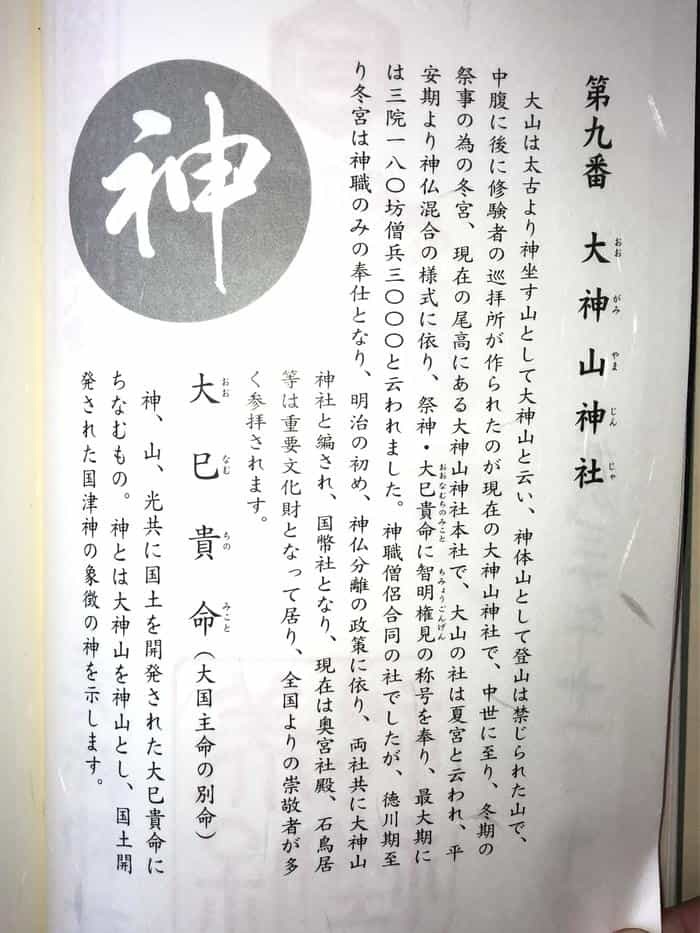 第九番 大神山神社
おお がみ やま じん じゃ
大山は太古より神坐す山として大神山と云い、神体山として登山は禁じられた山で、
中腹に後に修験者の巡拝所が作られたのが現在の大神山神社で、中世に至り、冬期の
祭事の為の冬宮、現在の尾高にある大神山神社本社で、大山の社は夏宮と云われ、平
安期より神仏混合の様式に依り、祭神・大巳貴命に智明権見の称号を奉り、最大期に
おおなむちのみこと ちみょうごんげん
は三院一八〇坊僧兵三〇〇〇と云われました。神職僧侶合同の社でしたが、徳川期至
り冬宮は神職のみの奉仕となり、明治の初め、神仏分離の政策に依り、両社共に大神山
神社と編され、国幣社となり、現在は奥宮社殿、石鳥居
等は重要文化財となって居り、全国よりの崇敬者が多
く参拝されます。
神
大巳貴命(大国主命の別命)
おお なむ ちの みこと
神、山、光共に国土を開発された大巳貴命に
ちなむもの。神とは大神山を神山とし、国土開
発された国津神の象徴の神を示します。